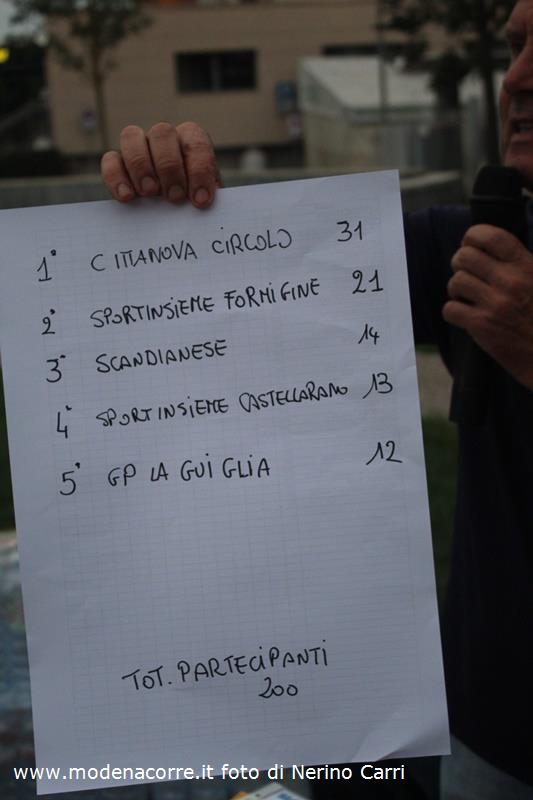 1° CITTANOVA CIRCOLO 31
2° SPORTINSIEME FORMIGINE 21
3° SCANDIANESE 14
4° SPORTINSIEME CASTELLARANO 13
5° GP LA GUIGLIA 12
TOT. PARTECIPANTI
200
www.modenacorre.it foto di Nerino Carri